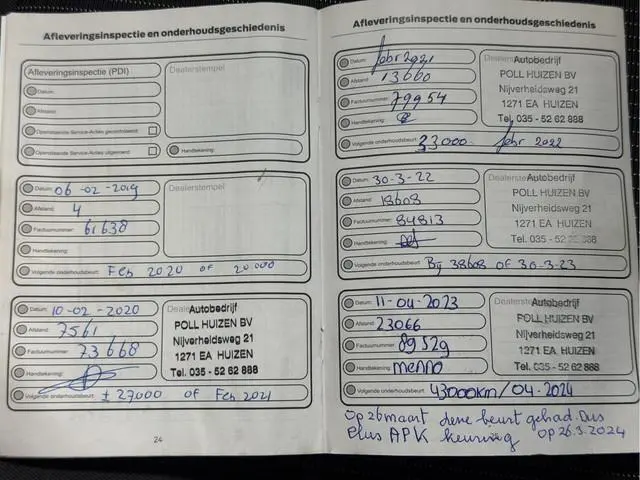 Afleveringsinspectie en onderhoudsgeschiedenis
Afleveringsinspectie (PDI)
Datum:
Afstand:
Openstaande Service-Acties gecontroleerd:
Openstaande Service-Acties uitgevoerd:
Dealerstempel
Handtekening:
Datum: 06-02-2019
Afstand: 4
Factuurnummer: 61638
Handtekening:
Volgende onderhoudsbeurt: Feb 2020 of 20000
Dealerstempel
Datum: 10-02-2020
Afstand: 7561
Factuurnummer: 73668
Handtekening:
Volgende onderhoudsbeurt: ± 27000 of Feb 2021
Autobedrijf
POLL HUIZEN BV
Nijverheidsweg 21
1271 EA HUIZEN
Tel. 035 - 52 62 888
24
Afleveringsinspectie en onderhoudsgeschiedenis
Datum: febr 2021
Afstand: 13660
Factuurnummer: 79954
Handtekening:
Volgende onderhoudsbeurt: 33000 febr 2022
Autobedrijf
POLL HUIZEN BV
Nijverheidsweg 21
1271 EA HUIZEN
Tel. 035 - 52 62 888
Datum: 30-3-22
Afstand: 18608
Factuurnummer: 84813
Handtekening:
Volgende onderhoudsbeurt: Bij 38608 OF 30-3-23
Autobedrijf
POLL HUIZEN BV
Nijverheidsweg 21
1271 EA HUIZEN
Tel. 035 - 52 62 888
Datum: 11-04-2023
Afstand: 23066
Factuurnummer: 89529
Handtekening: menno
Volgende onderhoudsbeurt: 43000km/04-2024
Autobedrijf
POLL HUIZEN BV
Nijverheidsweg 21
1271 EA HUIZEN
Tel. 035 - 52 62 888
Op 26 maart deze beurt gehad. Dus
Plus APK keuring op 26.3.2024